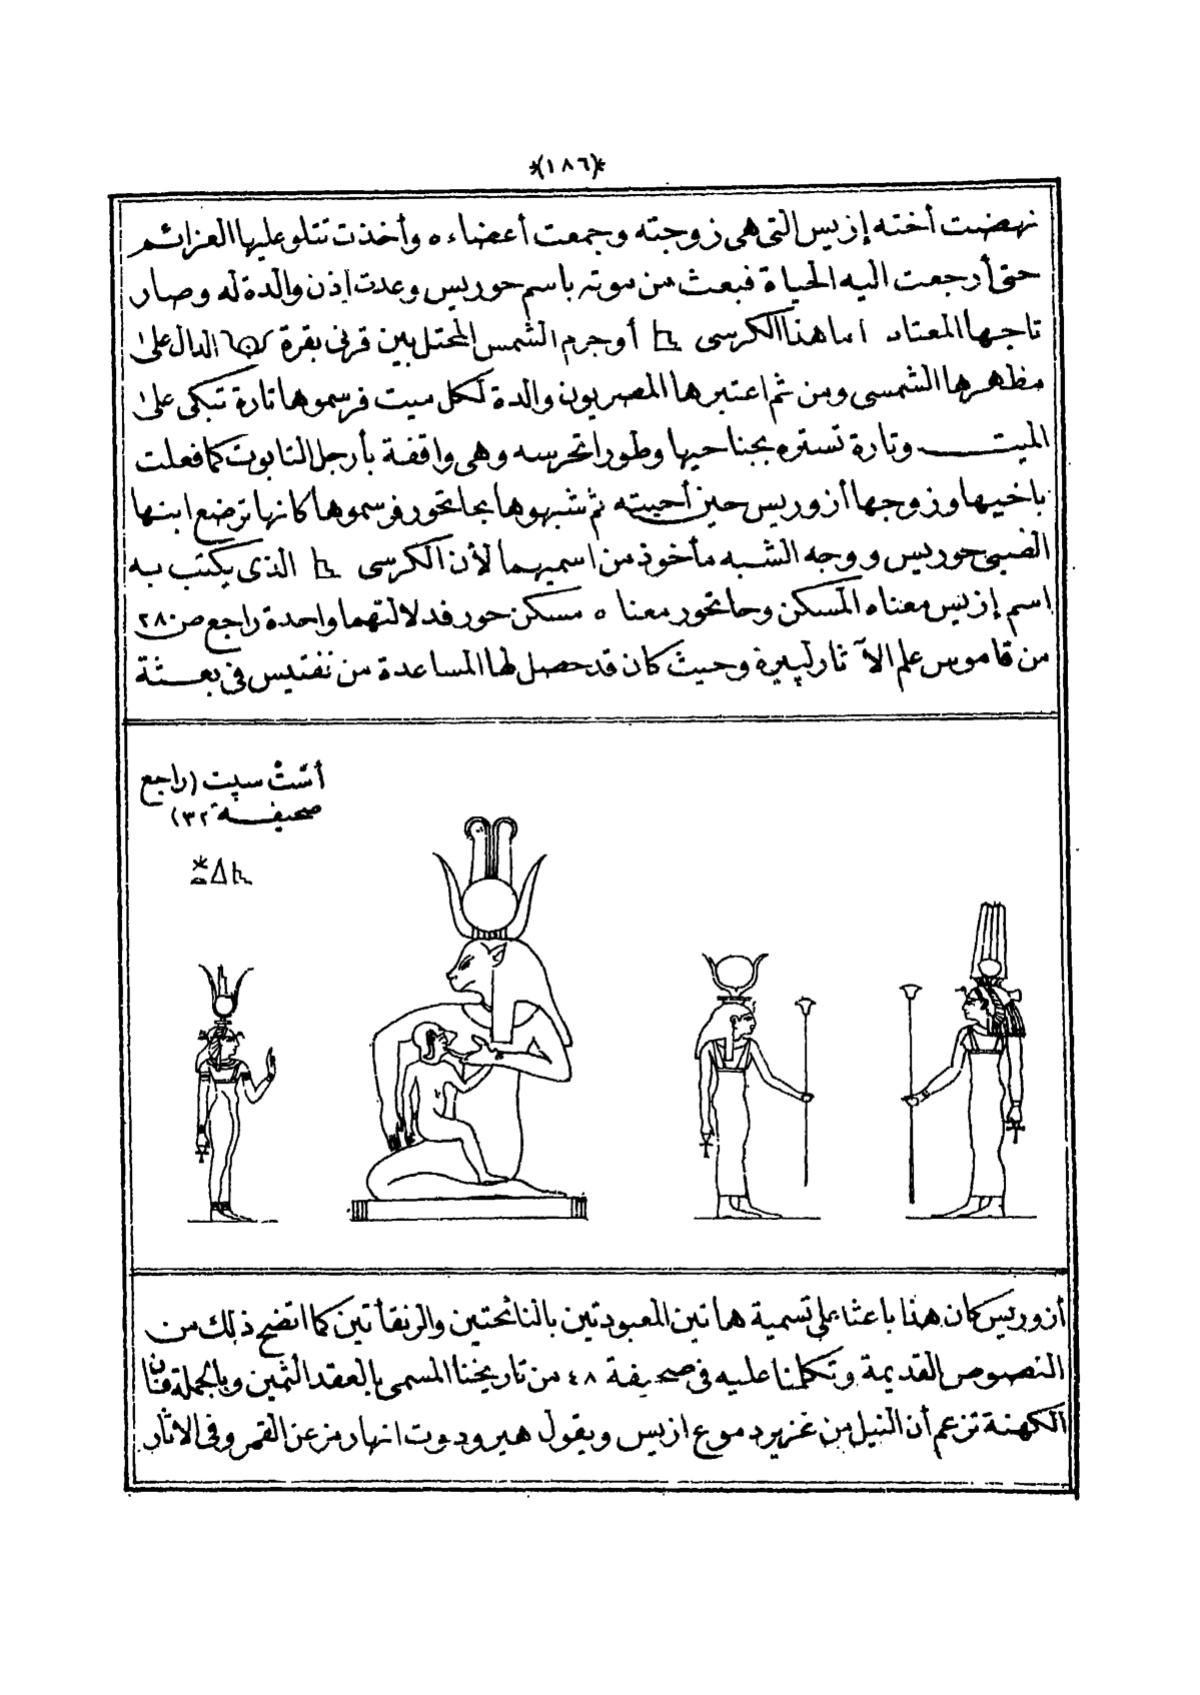 *(١٨٦)*
نهضت أخته إزيس التى هى زوجته وجمعت أعضاءه وأخذت تتلو عليها العزائم
حتى أرجعت اليه الحياة فبعث من موته باسم حوريس وعدت إذن والدة له وصار
تاجها المعتاد اما هذا الكرسى 𓊨 أو جرم الشمس المحتل بين قرنى بقرة الدال على
مظهرها الشمسى ومن ثم اعتبرها المصريون والدة لكل ميت فرسموها تارة تبكى على
الميت وتارة تستره بجناحيها وطورا تحرسه وهى واقفة بأرجل التابوت كما فعلت
باخيها وزوجها أزوريس حين أحيته ثم شبهوها بحاتحور فرسموها كانها ترضع ابنها
الصبى حوريس ووجه الشبه مأخوذ من اسميهما لأن الكرسى 𓊨 الذى يكتب به
اسم إزيس معناه المسكن وحاتحور معناه مسكن حور فدلالتهما واحدة راجع ص ٢٨٠
من قاموس علم الآثار لپيره وحيث كان قد حصل لها المساعدة من نفتيس فى بعثة
أسْت سپت (راجع
صحيفة ٣٢)
أزوريس كان هذا باعثا على تسمية هاتين المعبودتين بالنائحتين والرنقأتين كما اتضح ذلك من
النصوص القديمة وتكلمنا عليه فى صحيفة ٤٨ من تاريخنا المسمى بالعقد الثمين وبالجملة فان
الكهنة تزعم أن النيل من غزير دموع ازيس ويقول هيرودوت انها رمز عن القمر وفى الاثار